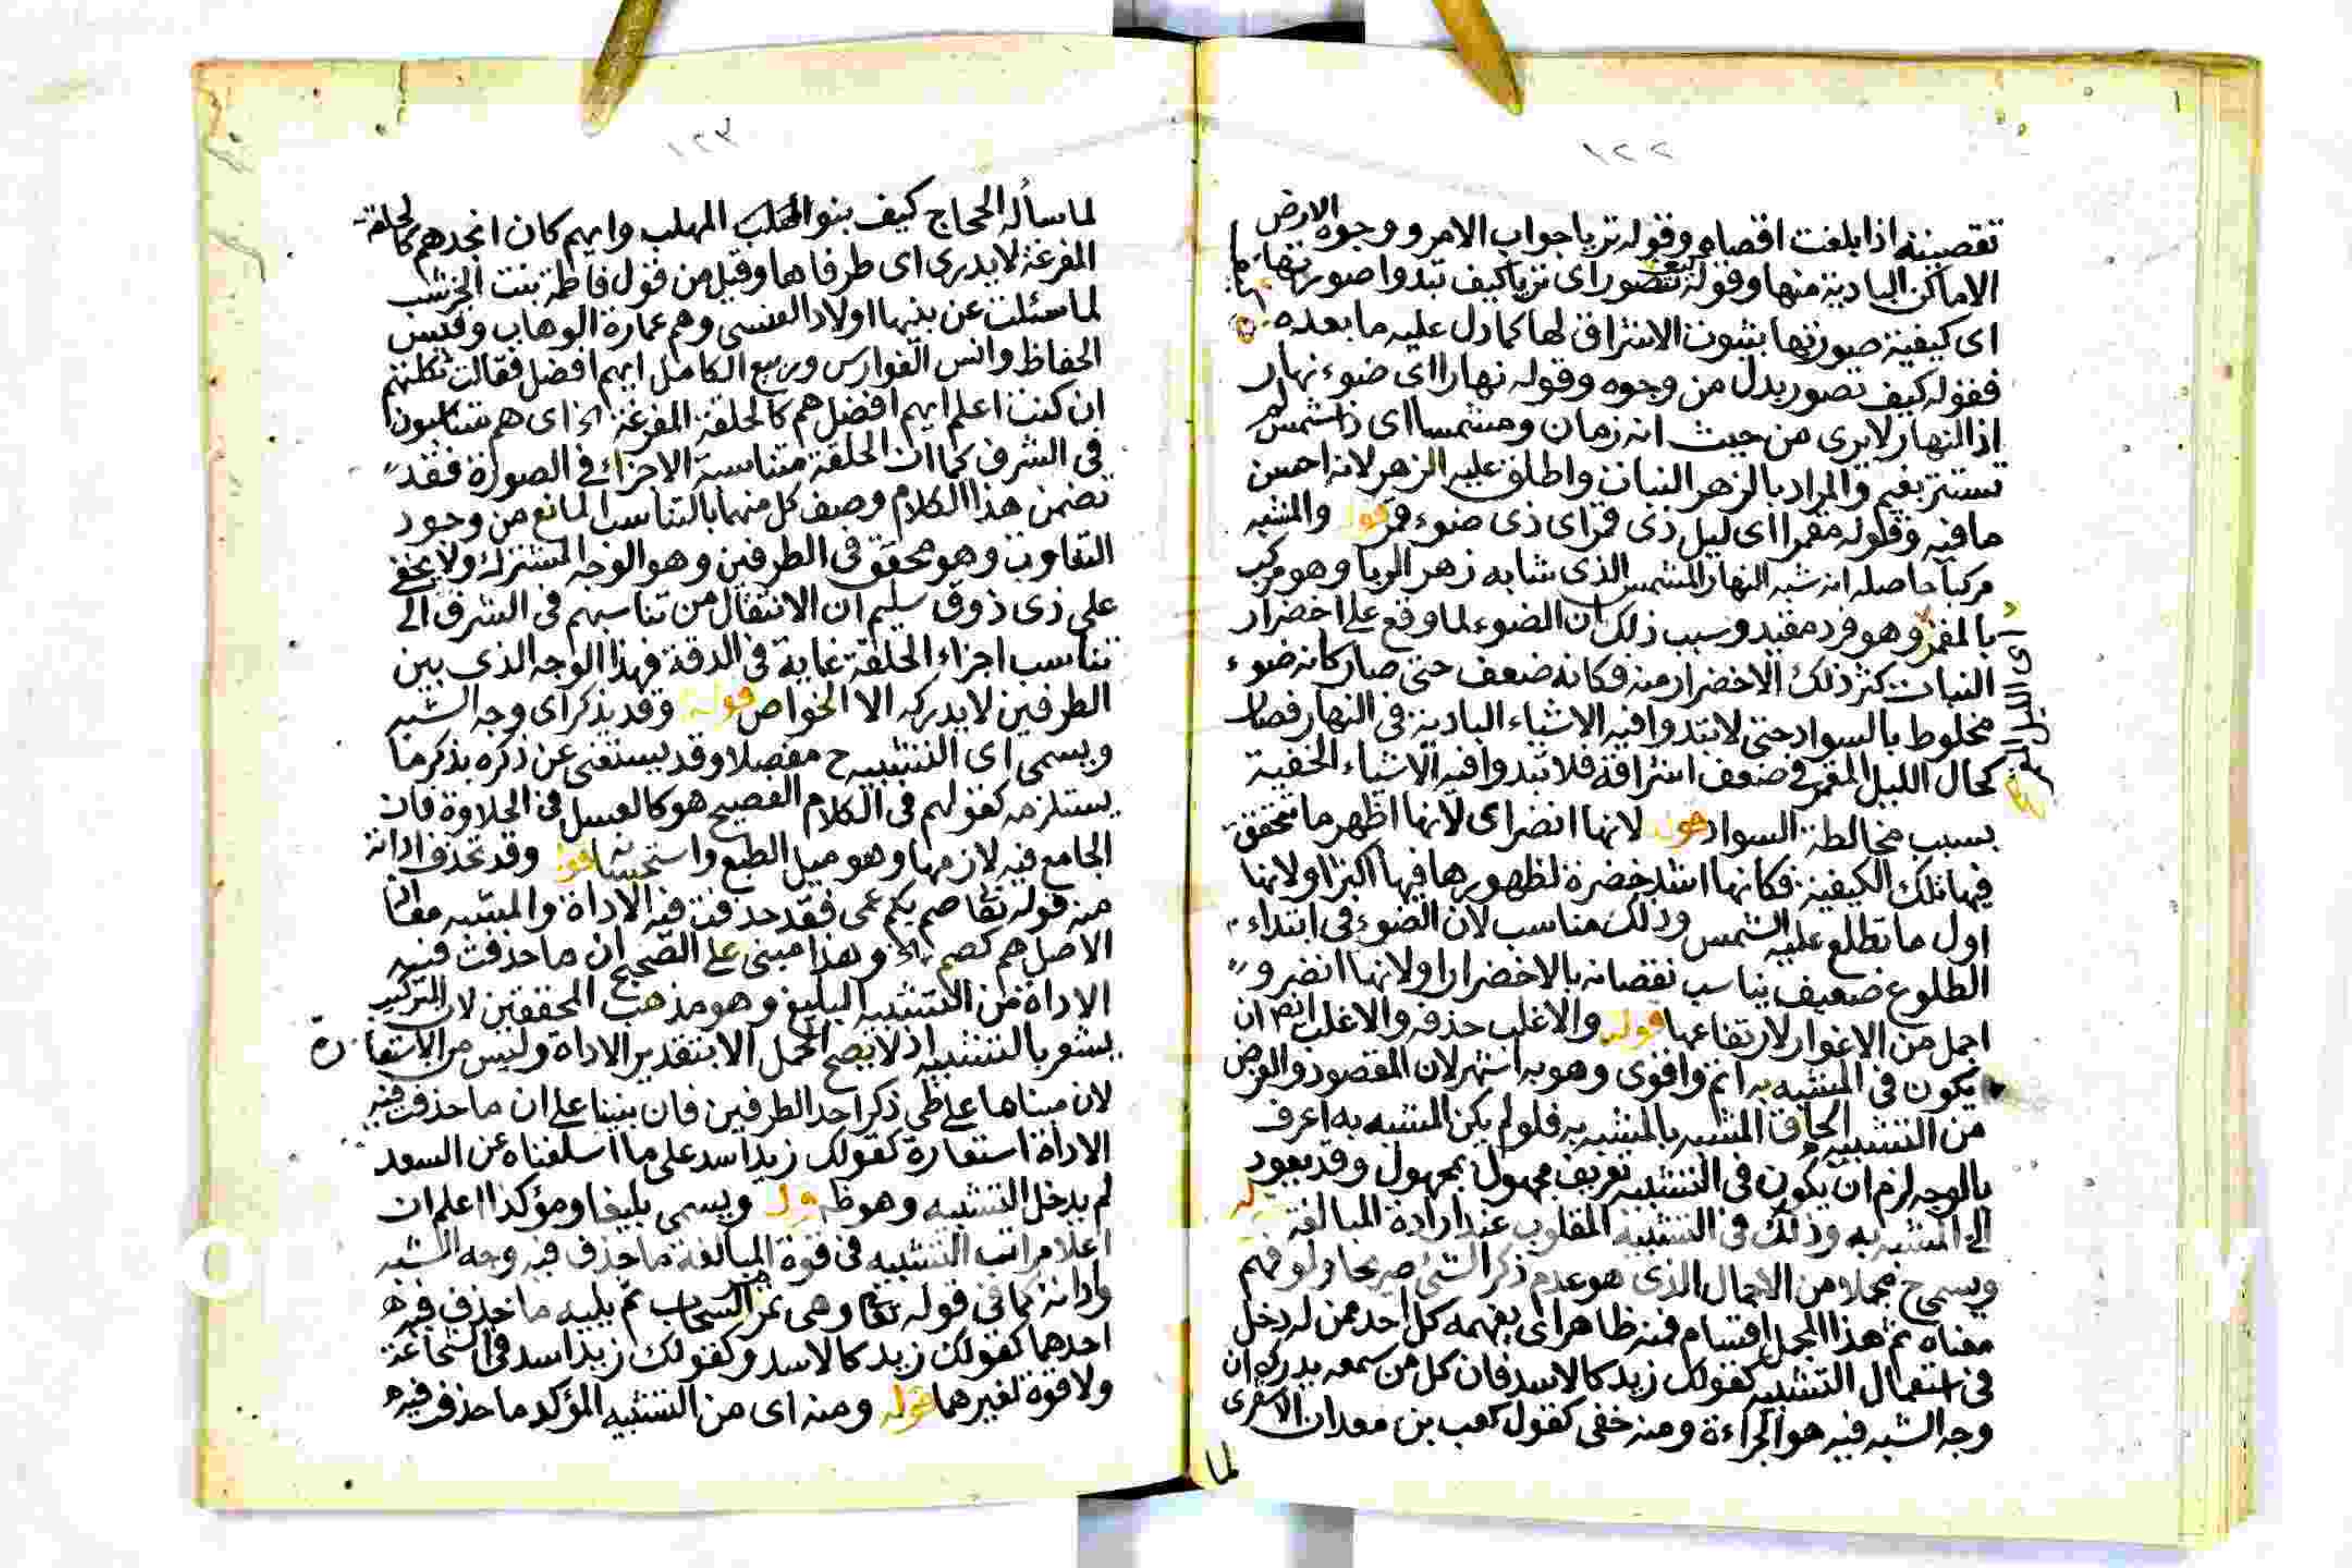 تقصيته اذا بلغت اقصاه وقوله تريا جواب الامر ووجوه الارض
الاماكن البادية منها وقوله كيف تصور اى تريا كيف تبدوا صورتها
اى كيفية صورتها بثبوت الاشراق لها كما دل عليه ما بعده
فقوله كيف تصور بدل من وجوه وقوله نهارا اى ضوء نهار
اذ النهار لا يرى من حيث انه زمان ومشمسا اى ذا شمس لم
تستتر بغيم والمراد بالزهر النبات واطلق عليه الزهر لانه احسن
ما فيه وقوله مقمرا اى ليل ذى قمر اى ذى ضوء قمر قوله والمشبه
مركبا حاصله انه شبه النهار المشمس الذى شابه زهر الربا وهو مركب
بالمقمر وهو فرد مقيد وسبب ذلك ان الضوء لما وقع على اخضرار
النبات كثر ذلك الاخضرار منه فكانه ضعف حتى صار كانه ضوء
مخلوط بالسواد حتى لا تبدوا فيه الاشياء البادية فى النهار فصار
كحال الليل المقمر فى ضعف اشراقه فلا تبدوا فيه الاشياء الخفية
اى الليل المقمر
بسبب مخالطة السواد قوله لانها انضر اى لانها اظهر ما تتحقق
فيها تلك الكيفية فكانها اشد خضرة لظهورها فيها اكثر او لانها
اول ما تطلع عليه الشمس وذلك مناسب لان الضوء فى ابتداء
الطلوع ضعيف يناسب نقصانه بالاخضرار او لانها انضر و
اجمل من الاغوار لارتفاعها قوله والاغلب حذفه والاغلب ايضا ان
يكون فى المشبه به اتم واقوى وهو به اشهر لان المقصود والغرض
من التشبيه الحاق المشبه بالمشبه به فلو لم يكن المشبه به اعرف
بالوجه لزم ان يكون فى التشبيه تعريف مجهول بمجهول وقد يعود
الى المشبه به وذلك فى التشبيه المقلوب عند ارادة المبالغة قوله
ويسمى ح مجملا من الاجمال الذى هو عدم ذكر الشئ صريحا ولو فهم
معناه ثم هذا المجمل اقسام فمنه ظاهر اى يفهمه كل احد ممن له دخل
فى استعمال التشبيه كقولك زيد كالاسد فان كل من سمعه يدرك ان
وجه الشبه فيه هو الجراءة ومنه خفى كقول كعب بن معدان الاشقرى
لما
لما سأله الحجاج كيف بنو المهلب وايهم كان انجدهم كالحلقة
المفرغة لا يدرى اى طرفاها وقيل من قول فاطمة بنت الخرشب
لما سئلت عن بنيها اولاد العنسى وهم عمارة الوهاب وقيس
الحفاظ وانس الفوارس وربيع الكامل ايهم افضل فقالت ثكلتهم
ان كنت اعلم ايهم افضل هم كالحلقة المفرغة اه اى هم متناسبون
فى الشرف كما ان الحلقة متناسبة الاجزاء فى الصورة فقد
تضمن هذا الكلام وصف كل منهما بالتناسب المانع من وجود
التفاوت وهو محقق فى الطرفين وهو الوجه المشترك ولا يخفى
على ذى ذوق سليم ان الانتقال من تناسبهم فى الشرف الى
تناسب اجزاء الحلقة غاية فى الدقة فهذا الوجه الذى بين
الطرفين لا يدركه الا الخواص قوله وقد يذكر اى وجه الشبه
ويسمى اى التشبيه ح مفصلا وقد يستغنى عن ذكره بذكر ما
يستلزمه كقولهم فى الكلام الفصيح هو كالعسل فى الحلاوة فان
الجامع فيه لازمها وهو ميل الطبع واستحسانه قوله وقد تحذف اداته
منه قوله تعا صم بكم عمى فقد حذفت فيه الاداة والمشبه معا اذ
الاصل هم كصم اه وهذا مبنى على الصحيح ان ما حذفت فيه
الاداة من التشبيه البليغ وهو مذهب المحققين لان التركيب
يشعر بالتشبيه اذ لا يصح الحمل الا بتقدير الاداة وليس من الاستعارة
لان مبناها على طى ذكر احد الطرفين فان بنينا على ان ما حذف فيه
الاداة استعارة كقولك زيد اسد على ما اسلفناه عن السعد
لم يدخل التشبيه وهو ظ قوله ويسمى بليغا ومؤكدا اعلم ان
اعلا مراتب التشبيه فى قوة المبالغة ما حذف فيه وجه الشبه
واداته كما فى قوله تعا وهى تمر مر السحاب ثم يليه ما حذف فيه
احدهما كقولك زيد كالاسد وكقولك زيد اسد فى الشجاعة
ولا قوة لغيرهما قوله ومنه اى من التشبيه المؤكد ما حذف فيه